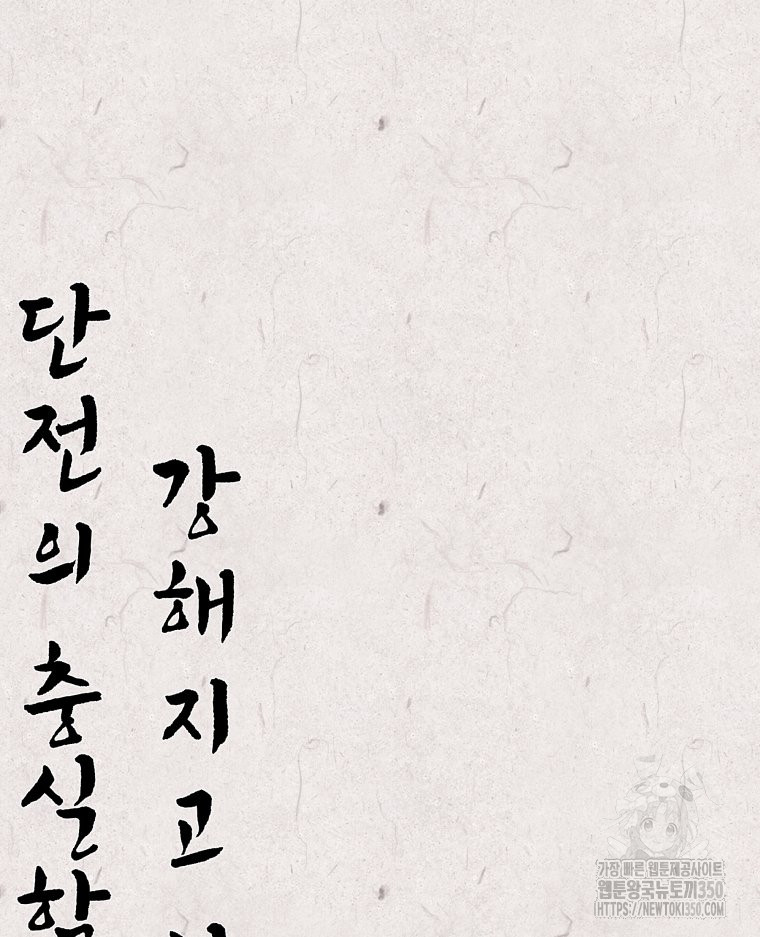 강해지고
단전의 충실함
가장 빠른 웹툰제공사이트
웹툰왕국뉴토끼350
HTTPS://NEWTOKI350.COM